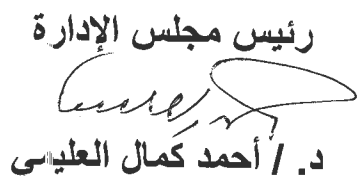 رئيس مجلس الإدارة
د. / أحمد كمال العليمى